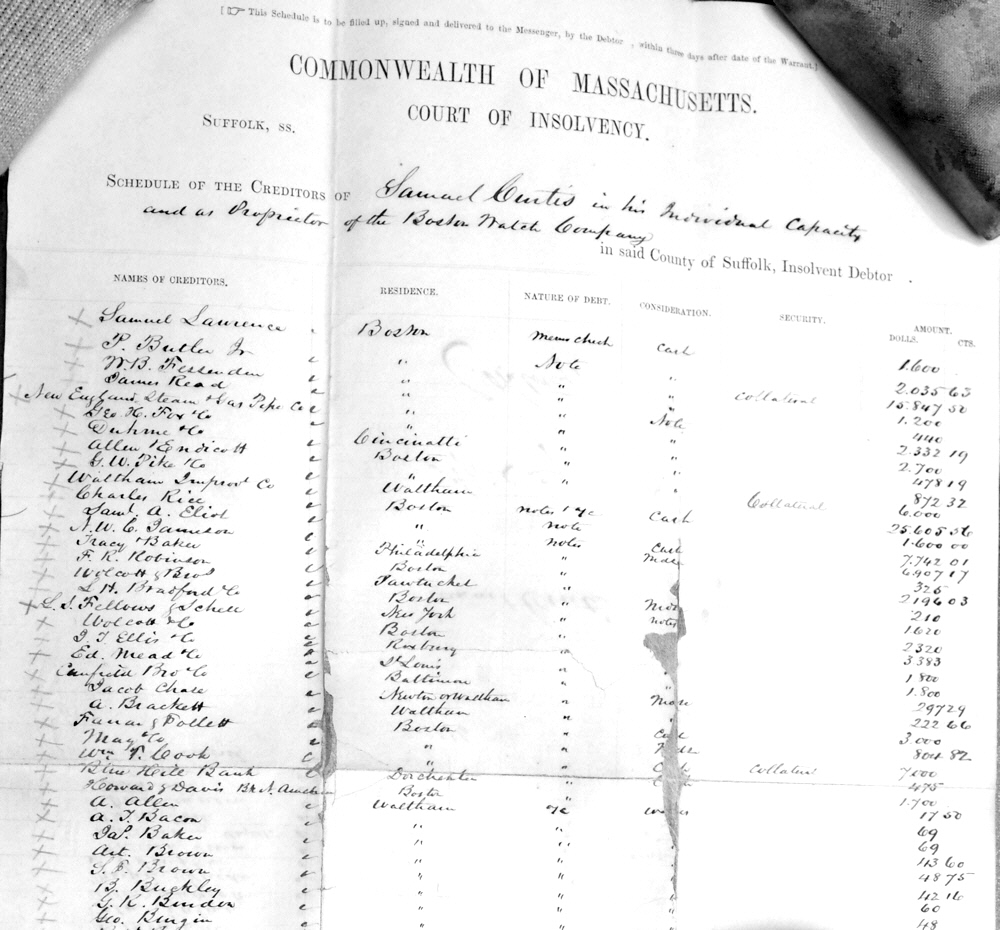 [ ☞ This Schedule is to be filled up, signed and delivered to the Messenger, by the Debtor , within three days after date of the Warrant.]
COMMONWEALTH OF MASSACHUSETTS.
COURT OF INSOLVENCY.
SUFFOLK, SS.
SCHEDULE OF THE CREDITORS OF Samuel Curtis in his Individual Capacity
and as Proprietor of the Boston Watch Company
in said County of Suffolk, Insolvent Debtor .
NAMES OF CREDITORS. RESIDENCE. NATURE OF DEBT. CONSIDERATION. SECURITY. AMOUNT.
DOLLS. CTS.
Samuel Laurence Boston Memo check Cash 1.600
P. Butler Jr " Note " 2.035 63
W. B. Fessenden " " " Collateral 15.847 50
James Read " " Note 1.200
New England Steam & Gas Pipe Co " " " 440
Geo. H. Fox & Co " " " 2.332 19
Duhme & Co Cincinatti " " 2.700
Allen & Endicott Boston " " 478 19
G. W. Pike & Co " " " Collateral 872 32
Waltham Improvt Co Waltham 6.000
Charles Rice Boston notes Cash 25.605 56
Saml. A. Eliot " note 1.600 00
N. W. C. Jameson " notes Cash 7.742 01
Tracy & Baker Philadelphia " Mdse 6.907 17
F. R. Robinson Boston " 325
Wolcott & Bros Pawtucket " 2196 03
L. H. Bradford & Co Boston " Mdse 210
L. S. Fellows & Schell New York " notes 1620
Wolcott & Co Boston " 2320
J. T. Ellis & Co Roxbury " 3383
Ed. Mead & Co St Louis " 1800
Canfield Bro & Co Baltimore " " 1.800
Jacob Chase Newton or Waltham " Mdse 297 29
A. Brackett Waltham " 222 66
Farrar & Follett Boston " Cash 3.000
May & Co " " 804 82
Wm. P. Cook " " Collateral 7000
Blue Hill Bank Dorchester " 475
Howard & Davis Boston " 1.700
A. Allen Waltham 17 50
A. T. Bacon " " " 69
Jas. Baker " " " 69
Art. Brown " " " 113 60
S. P. Brown " " " 48 75
B. Buckley " " " 42 16
G. K. " " " 60
Geo. " " " 48